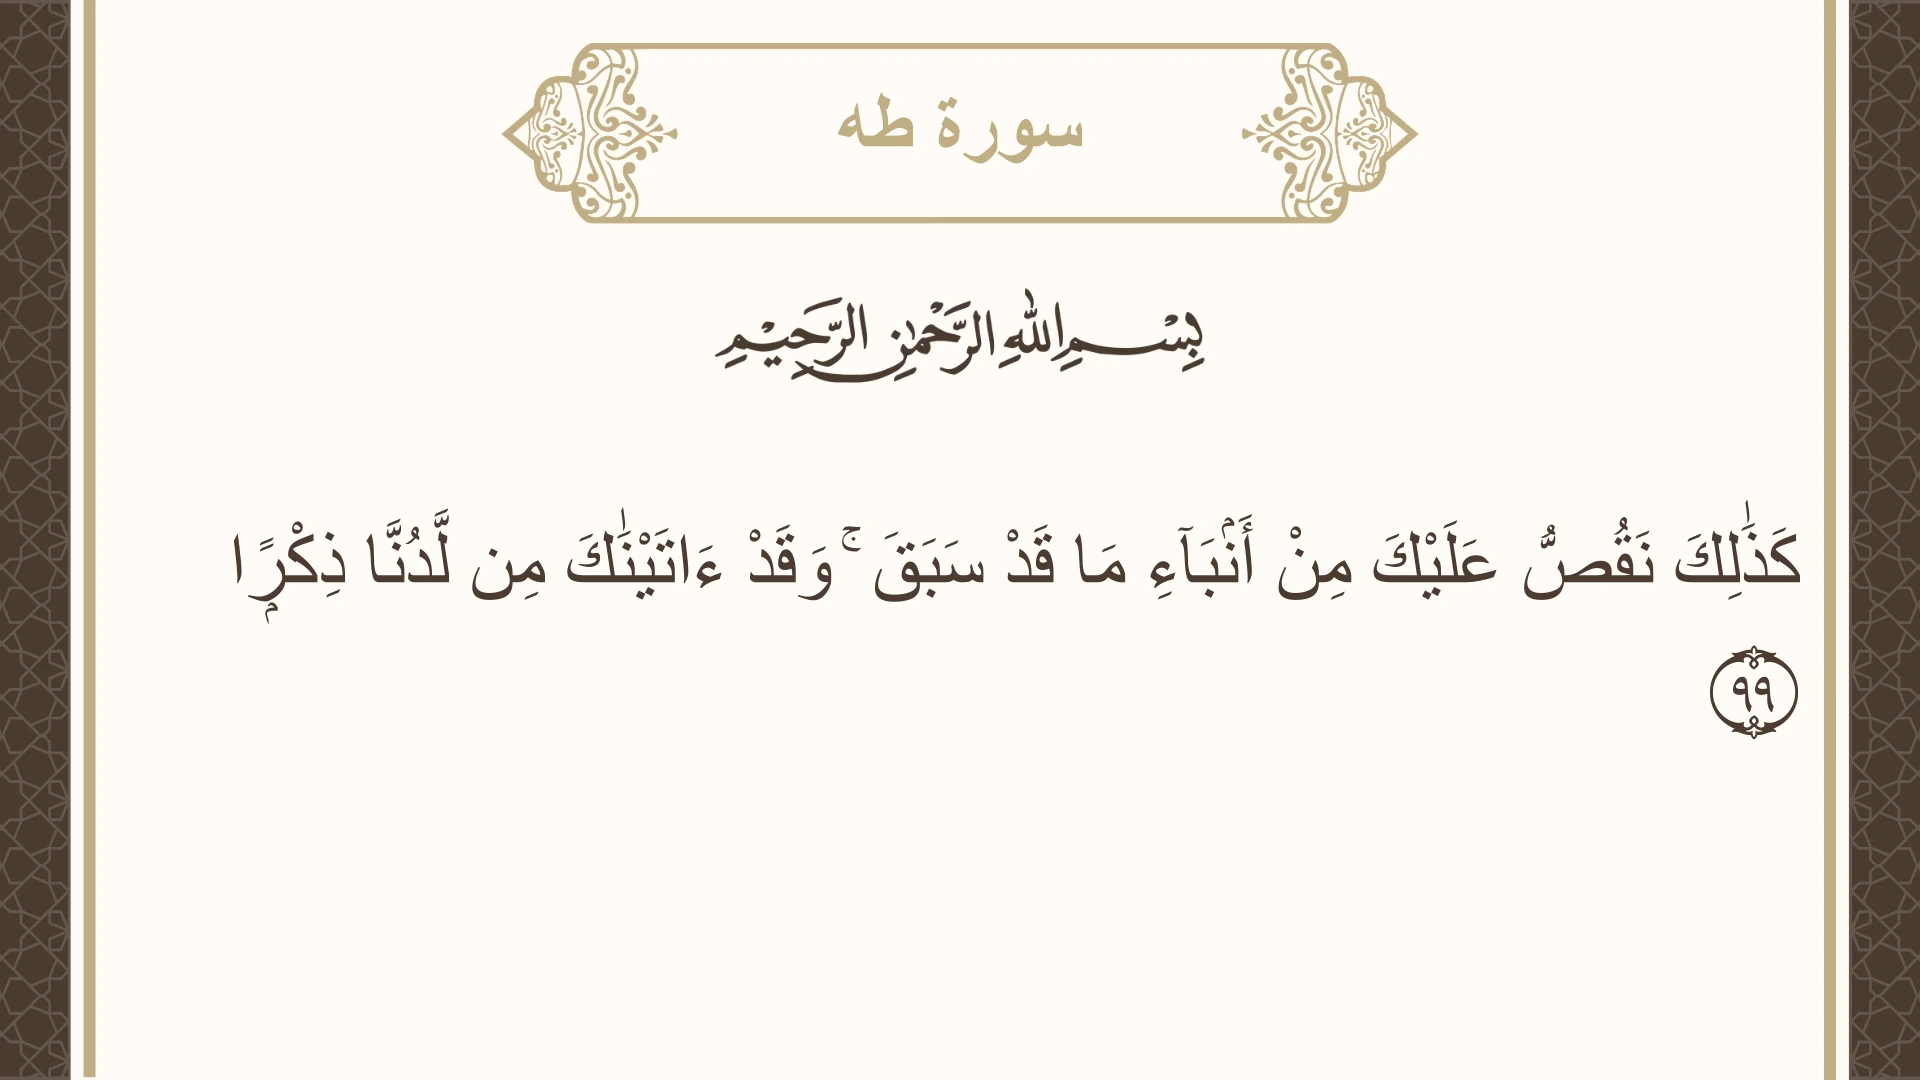 سورة طه
بِسْمِ اللهِ الرَّحْمٰنِ الرَّحِيْمِ
كَذَٰلِكَ نَقُصُّ عَلَيْكَ مِنْ أَنۢبَآءِ مَا قَدْ سَبَقَ ۚ وَقَدْ ءَاتَيْنَٰكَ مِن لَّدُنَّا ذِكْرًۭا
٩٩